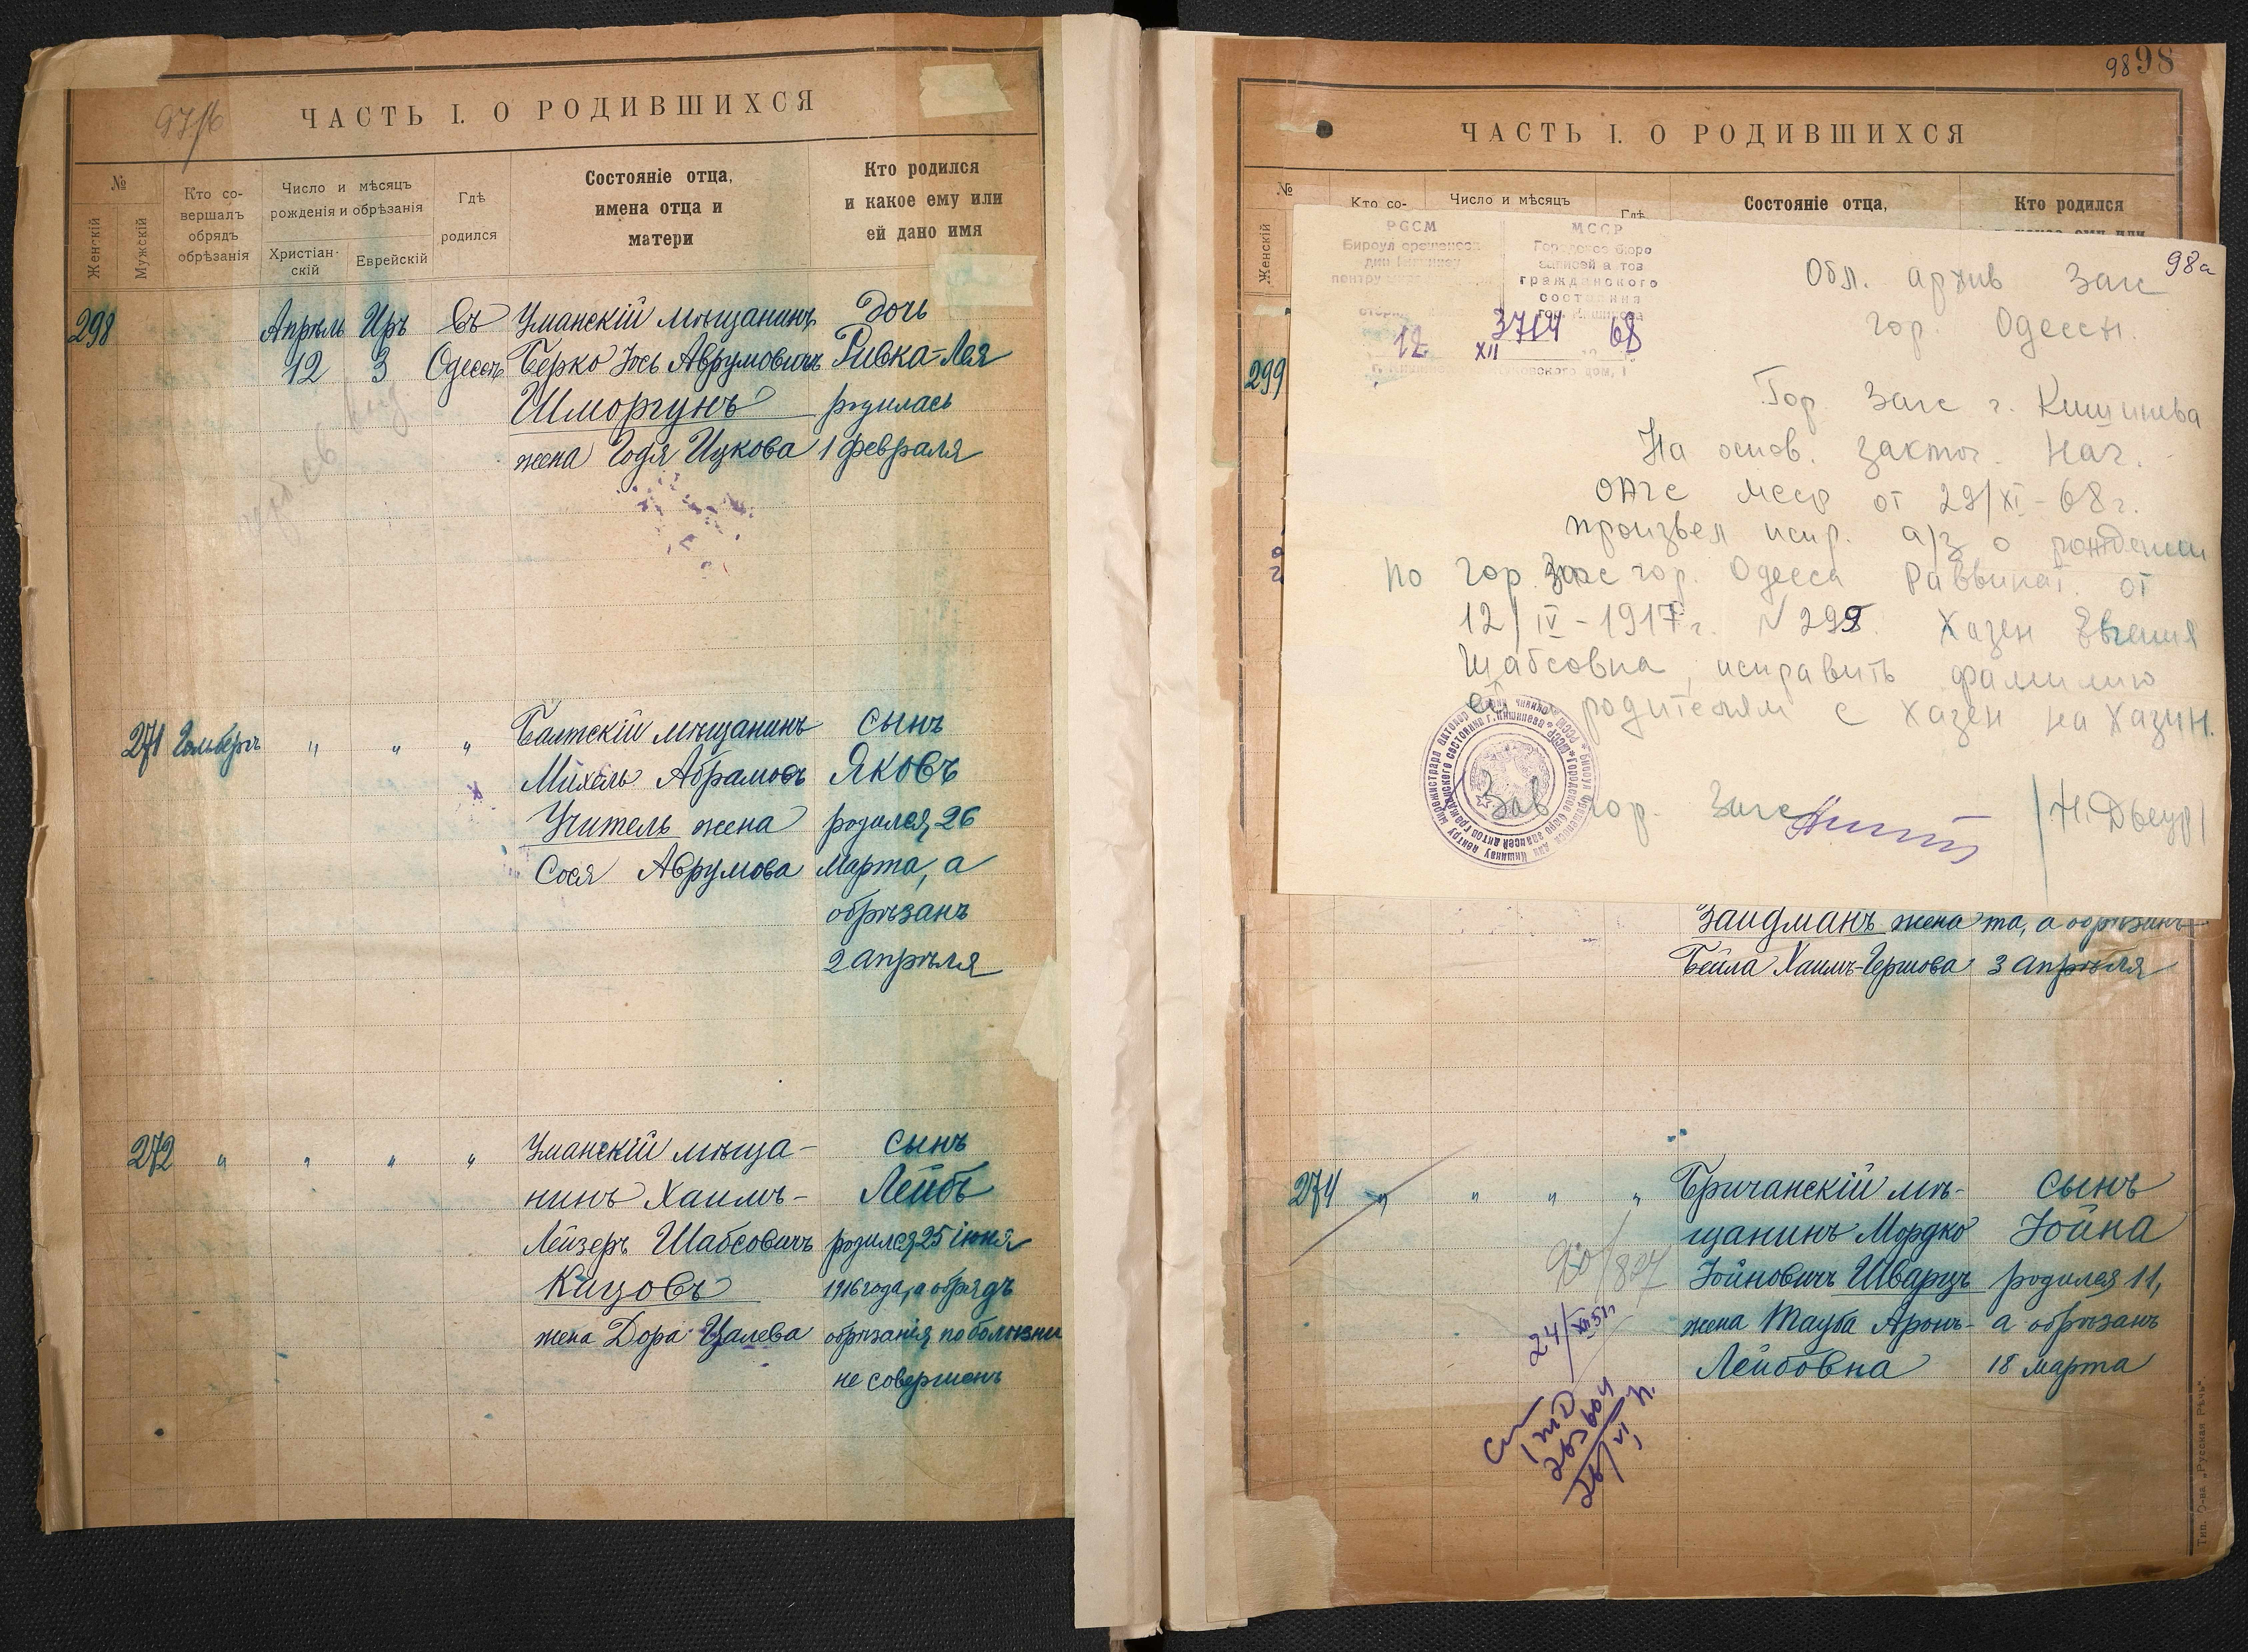 97/б
ЧАСТЬ I. О РОДИВШИХСЯ
№
Женскій
Мужскій
Кто со-
вершалъ
обрядъ
обрѣзанія
Число и мѣсяцъ
рожденія и обрѣзанія
Христіан-
скій
Еврейскій
Гдѣ
родился
Состояніе отца,
имена отца и
матери
Кто родился
и какое ему или
ей дано имя
298 Апрѣль Иръ Въ Уманскій мѣщанинъ Дочь
12 3 Одессѣ Берко Іось Аврумовичъ Ривка-Лея
Шморгунъ родилась
жена Годя Ицкова 1 февраля
271 Гольбергъ " " " Балтскій мѣщанинъ сынъ
Михель Абрамовъ Яковъ
Учитель жена родился 26
Сося Аврумова марта, а
обрѣзанъ
2 апрѣля
272 " " " " Уманскій мѣща- сынъ
нинъ Хаимъ- Лейбъ
Лейзеръ Шабсовичъ родился 25 іюня
Кицовъ 1916 года, а обрядъ
жена Дора Цалева обрѣзанія по болѣзни
не совершенъ
98 98
ЧАСТЬ I. О РОДИВШИХСЯ
№
Женскій
Кто со-
Число и мѣсяцъ
Гдѣ
Состояніе отца,
Кто родился
299
РССМ
МССР
Городское бюро
записей актов
гражданского
состояния
гор. Кишинева
12 XII 3714 68
98а
Обл. архив Загс
гор. Одессы.
Гор. Загс г. Кишинева
На основ. заключ. Нач.
ОАГС МССР от 29/XI-68 г.
произвел испр. а/з о рождении
по гор. Загс гор. Одесса Раввинат. от
12/IV-1917 г. N 299. Хазен Евгения
Шабсовна, исправить фамилию
ей родителям с Хазен на Хазин.
Зав гор. Загс
зайдманъ жена та, а обрѣзанъ
Бейла Хаимъ-Гершова 3 апрѣля
274 " " " " Бричанскій мѣ- сынъ
щанинъ Мордко Іойна
Іойновичъ Шварцъ родился 11,
жена Тауба Аронъ- а обрѣзанъ
Лейбовна 18 марта
24/XII 51
Тип. О-ва „Русская Рѣчь“.